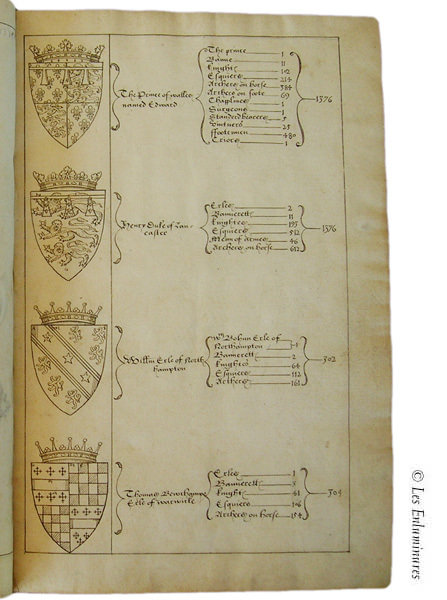 The Prince of walles
named Edward
The prince 1
11
Knight 102
Esquiers 214
Archers on horse 384
Archers on foote 69
Chaplines 1
Surgeons 1
Standerdbearers 5
25
ffootemen 480
Criors 1
1376
Henry Duke of Lan-
caster
Erles 2
Bannerett 11
Knightes
Esquiers 512
Menn of Armes 46
Archers on horse 612
1376
Willm Erle of North
hampton
Wm Bohun Erle of
Northampton 1
Bannerett 2
Knightes 66
Esquiers 112
Archers 161
302
Thomas
Erle of warwicke
Erles 1
Bannerett 3
Knight 61
Esquiers 106
Archers on horse 154
© Les Enluminures